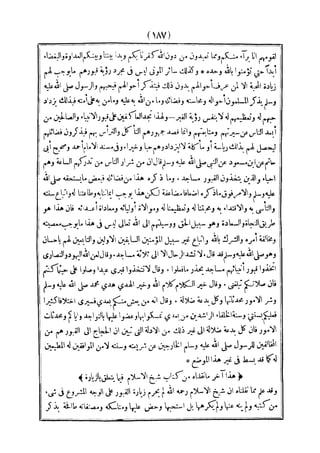 ﴿ ١٨٧ ﴾
لقومهم انا برآء منكم ومما تعبدون من دون الله كفرنا بكم وبدا بيننا وبينكم العداوة والبغضاء
أبداً حتى تؤمنوا بالله وحده * وكذلك سائر الموتى ليس فى مجرد رؤية قبورهم مايوجب لهم
زيادة المحبة الا لمن عرف أحوالهم بدون ذلك فيتذكر أحوالهم فيحبهم والرسول صلى الله عليه
وسلم يذكر المسلمون أحواله ومحاسنه وفضائله وما من الله به عليه ومامن به على أمته فبذلك يزداد
حبهم له وتعظيمهم له لا بنفس رؤية القبر — ولهذا تجد العاكفين على قبور الانبياء والصالحين من
أبعد الناس عن سيرتهم ومتابعتهم وانما قصد جمهورهم التأكل والترأس بهم فيذكرون فضائلهم
ليحصل لهم بذلك رياسة أو مأكلة لا ليزدادوا هم حبا وخيرا، وفى مسند الامام أحمد وصحيح أبى
حاتم عن ابن مسعود عن النبى صلى الله عليه وسلم قال ان من شرار الناس من تدركهم الساعة وهم
احياء والذين يتخذون القبور مساجد ، وما ذكره هذا من فضائله فبعض مايستحقه صلى الله
عليه وسلم والامر فوق ماذكره اضعافا مضاعفة لكن هذا يوجب ايماننا به وطاعتنا له واتباع سنته
والتأسى به والاقتداء به ومحبتنا له وتعظيمنا له وموالاة أوليائه ومعاداة أعدائه فان هذا هو
طريق النجاة والسعادة وهو سبيل الحق ووسيلتهم الى الله تعالى ليس فى هذا مايوجب معصيته
ومخالفة أمره والشرك بالله واتباع غير سبيل المؤمنين السابقين الاولين والتابعين لهم باحسان
وهو صلى الله عليه وسلم قد قال. لا تشد الرحال الا الى ثلاثة مساجد. وقال لعن الله اليهود والنصارى
اتخذوا قبور أنبيائهم مساجد يحذر مافعلوا . وقال لا تتخذوا قبرى عيدا وصلوا على حيثما كنتم
فان صلاتكم تبلغنى . وقال خير الكلام كلام الله وخير الهدي هدي محمد صلى الله عليه وسلم
وشر الامور محدثاتها وكل بدعة ضلالة . وقال انه من يعش منكم بعدي فسيرى اختلافا كثيرا
فعليكم بسنتي وسنة الخلفاء الراشدين من بعدي تمسكوا بها وعضوا عليها بالنواجذ واياكم ومحدثات
الامور فان كل بدعة ضلالة الى غير ذلك من الادلة التى تبين ان الحجاج الى القبور هم من
المخالفين للرسول صلى الله عليه وسلم الخارجين عن شريعته وسنته لا من الموافقين له المطيعين
له كما قد بسط فى غير هذا الموضع *
﴿ هذا آخر مانقلناه من كتاب شيخ الاسلام فيما يتعلق بالزيارة ﴾
وقد علم مما نقلناه ان شيخ الاسلام رحمه الله لم يحرم زيارة القبور على الوجه المشروع فى شىء
من كتبه ولم ينه عنها ولم يكرهها بل استحبها وحض عليها ومناسكه ومصنفاته طافحة بذكر